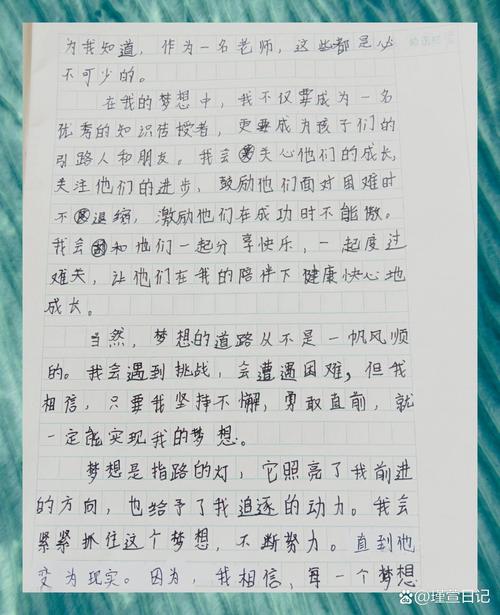 为我知道，作为一名老师，这些都是必
不可少的。
在我的梦想中，我不仅要成为一名
优秀的知识传授者，更要成为孩子们的
引路人和朋友。我会关心他们的成长，
关注他们的进步，鼓励他们面对困难时
不退缩，激励他们在成功时不能傲。
我会和他们一起分享快乐，一起度过
难关，让他们在我的陪伴下健康快心地
成长。
当然，梦想的道路从不是一帆风顺
的。我会遇到挑战，会遭遇困难，但我
相信，只要我坚持不懈，勇敢直前，就
一定能实现我的梦想。
梦想是指路的灯，它照亮了我前进
的方向，也给予了我追逐的动力。我会
紧紧抓住这个梦想，不断努力。直到他
变为现实。因为，我相信，每一个梦想
@瑾萱日记